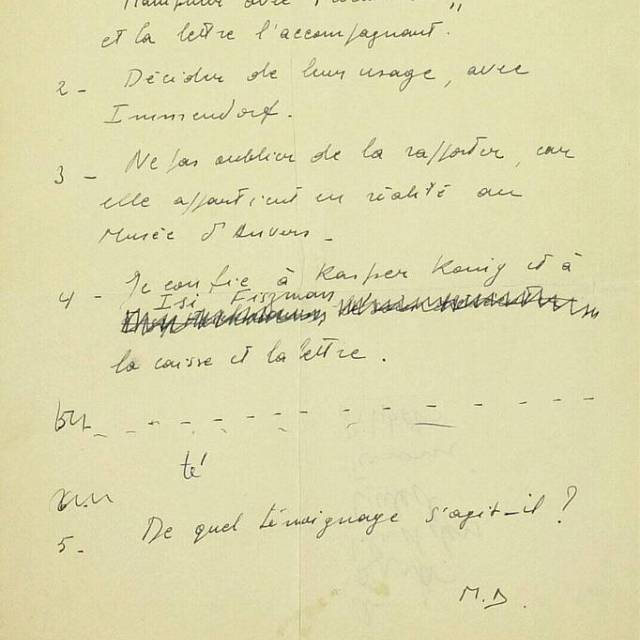 avec
et la lettre l'accompagnant.
2 - Décider de leur usage, avec
Immendorf.
3 - Ne pas oublier de la rapporter, car
elle appartient en réalité au
Musée d'Anvers -
4 - Je confie à Kasper König et à
Isi Fiszman
la caisse et la lettre.
té
5. De quel témoignage s'agit-il ?
M.B.